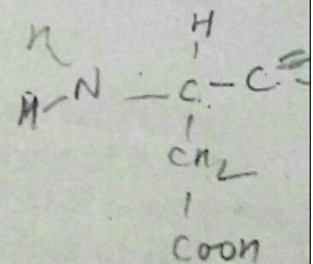 H
H N — C — C =
CH2
COOH